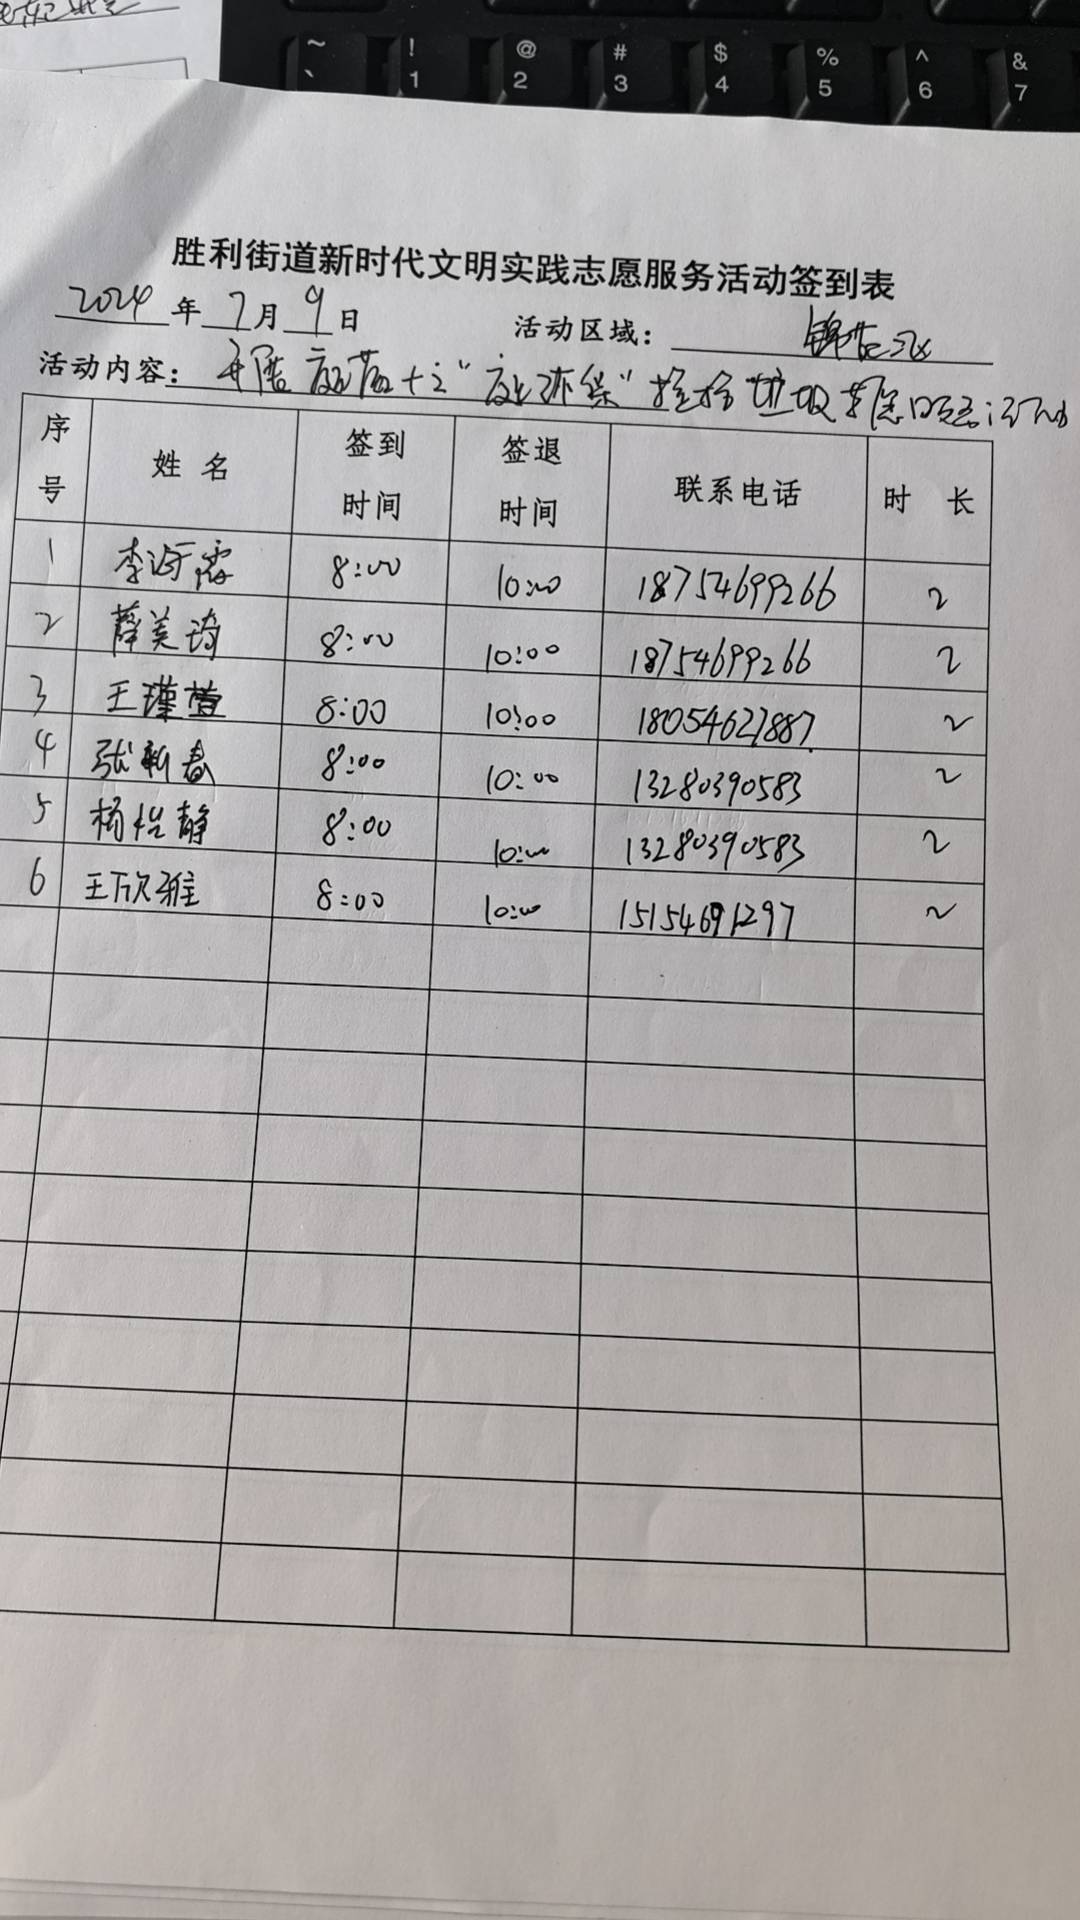 ~ ! @ # $ % ^ &
` 1 2 3 4 5 6 7
胜利街道新时代文明实践志愿服务活动签到表
2024年7月9日 活动区域:
活动内容: 开展 捡拾垃圾
序号 姓名 签到时间 签退时间 联系电话 时长
1 李 8:00 10:00 18754699266 2
2 薛美琦 8:00 10:00 18754699266 2
3 王瑾萱 8:00 10:00 18054627887 2
4 张新春 8:00 10:00 13280390583 2
5 杨怡静 8:00 10:00 13280390583 2
6 王欣雅 8:00 10:00 15154691297 2